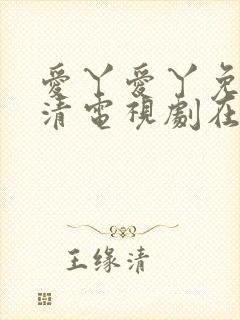 愛丫愛丫免
清電視劇在
王缘清